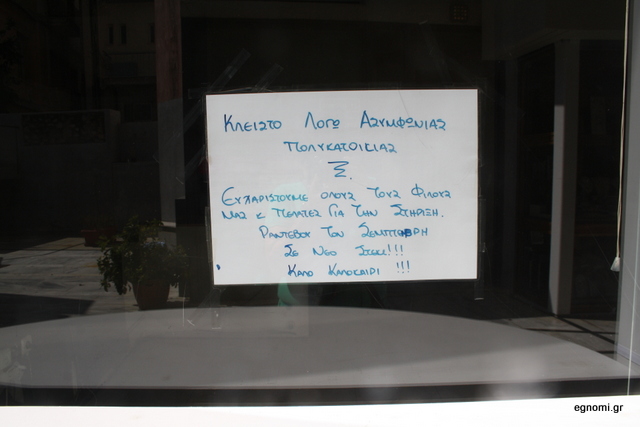 ΚΛΕΙΣΤΟ ΛΟΓΩ ΑΣΥΜΦΩΝΙΑΣ
ΠΟΛΥΚΑΤΟΙΚΙΑΣ
Σ.
ΕΥΧΑΡΙΣΤΟΥΜΕ ΟΛΟΥΣ ΤΟΥΣ ΦΙΛΟΥΣ
ΜΑΣ & ΠΕΛΑΤΕΣ ΓΙΑ ΤΗΝ ΣΤΗΡΙΞΗ.
ΡΑΝΤΕΒΟΥ ΤΟΝ ΣΕΠΤΕΜΒΡΗ
ΣΕ ΝΕΟ ΣΤΕΚΙ!!!
ΚΑΛΟ ΚΑΛΟΚΑΙΡΙ !!!
egnomi.gr